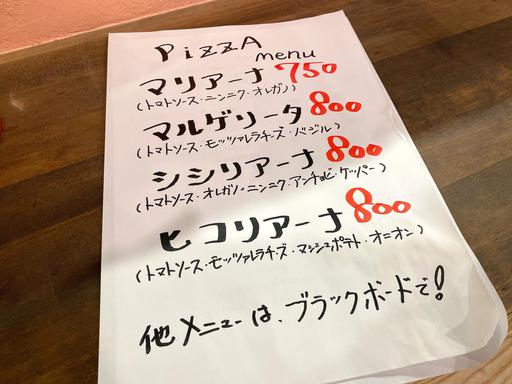 PiZZA
menu
マリアーナ 750
(トマトソース・ニンニク・オレガノ)
マルゲリータ 800
(トマトソース・モッツァレラチーズ・バジル)
シシリアーナ 800
(トマトソース・オレガノ・ニンニク・アンチョビ・ケッパー)
ヒコリアーナ 800
(トマトソース・モッツァレラチーズ・マッシュポテト・オニオン)
他メニューは、ブラックボードで!